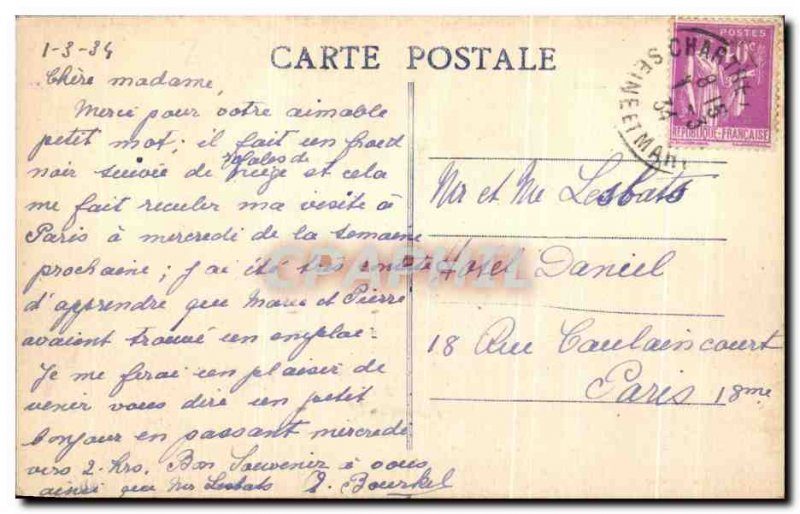 1-3-34
CARTE POSTALE
Chère madame,
Merci pour votre aimable
petit mot; il fait un froid
noir suivie de rafales de
neige et cela
me fait reculer ma visite à
Paris à mercredi de la semaine
prochaine; j'ai été très
d'apprendre que Marie et Pierre
avaient trouvé un emploi.
Je me ferai un plaisir de
venir vous dire un petit
bonjour en passant mercredi
vers 2 hrs. Bon Souvenir à vous
ainsi que Mr Lesbats
Mr et Me Lesbats
Hotel Daniel
18 Rue Caulaincourt
Paris 18me
POSTES
40c
REPUBLIQUE-FRANÇAISE
SEINE ET MAR
CPAPHIL